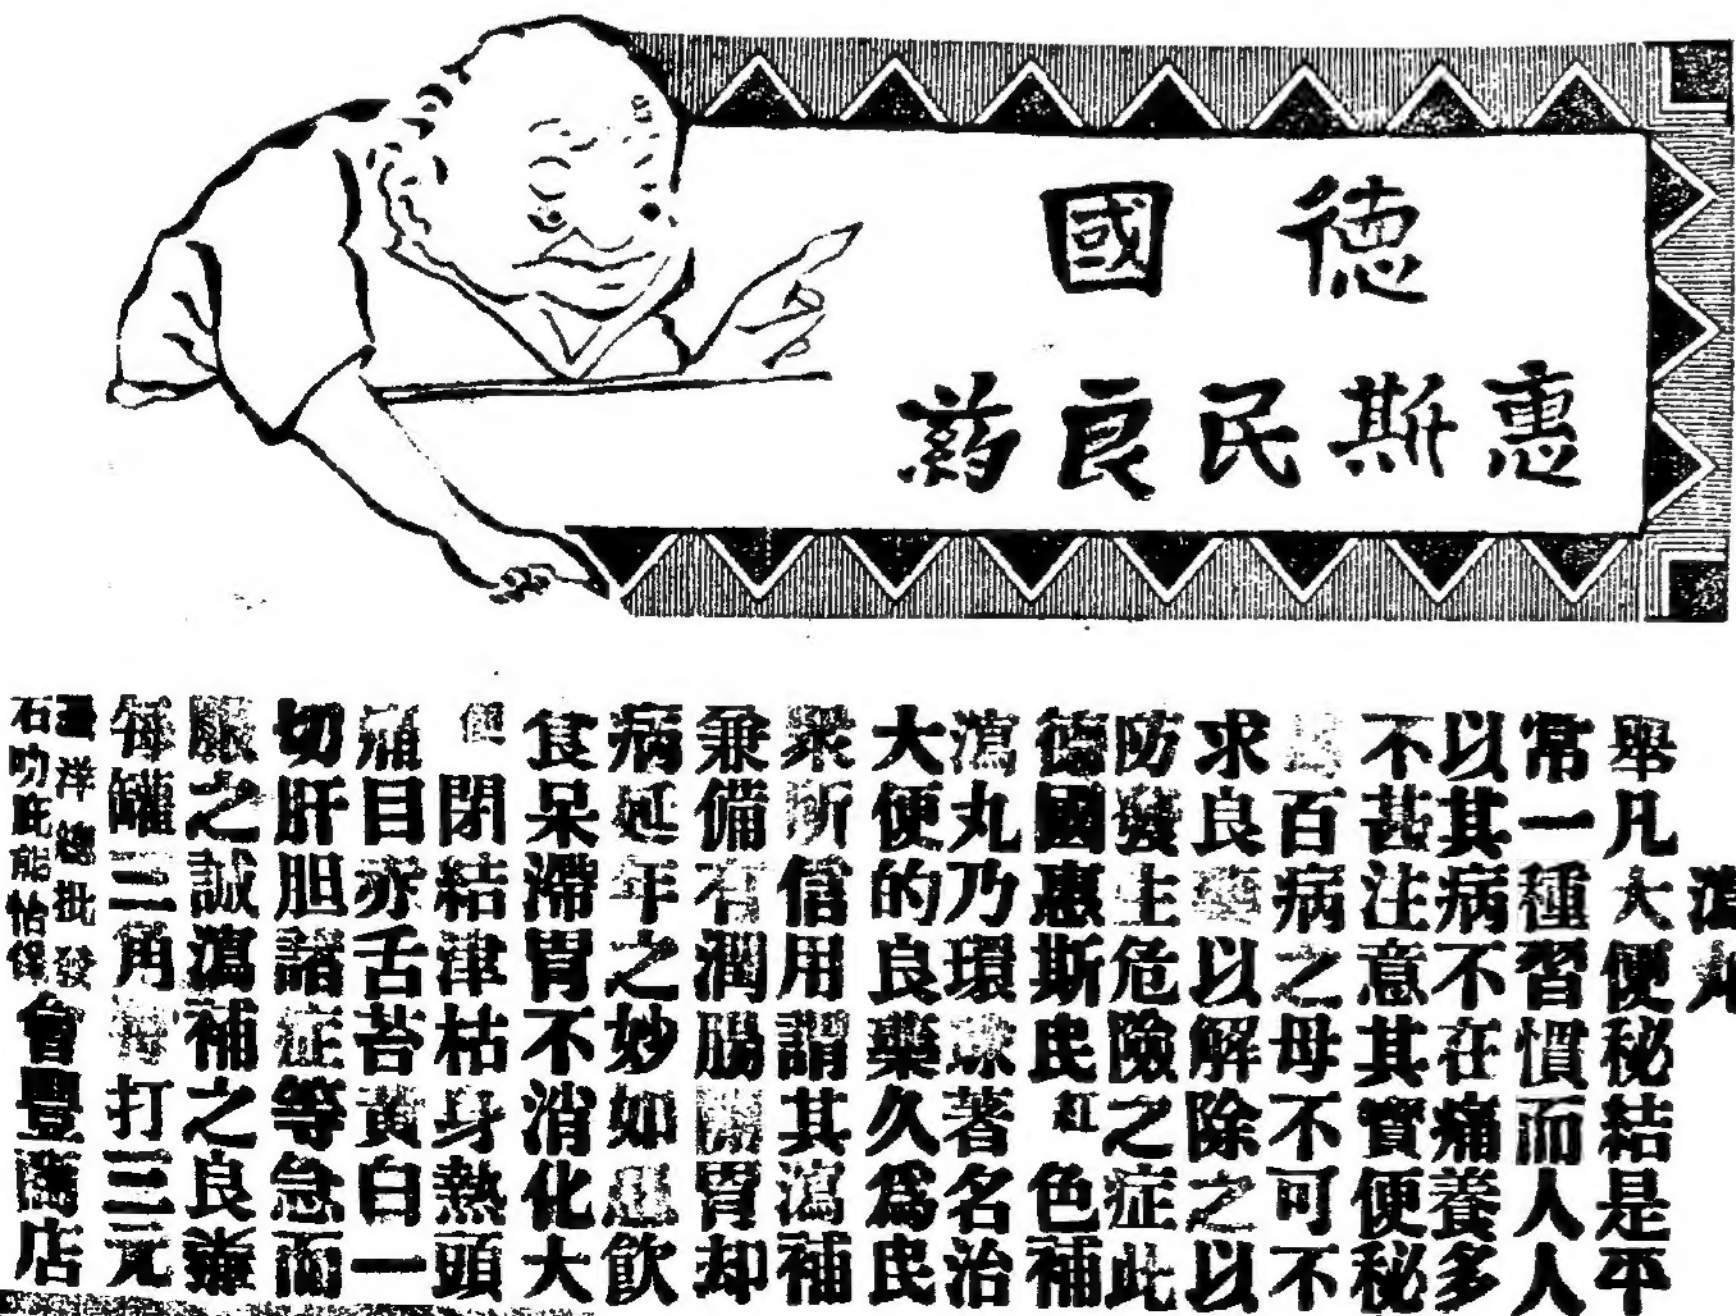 德國
惠斯民良葯
瀉丸
舉凡大便秘結是平
常一種習慣而人人
以其病不在痛養多
不甚注意其實便秘
百病之母不可不
求良藥以解除之以
防發生危險之症此
德國惠斯民紅色補
瀉丸乃環球著名治
大便的良藥久為民
眾所信用謂其瀉補
兼備有潤腸開胃却
病延年之妙如患飲
食呆滯胃不消化大
便閉結津枯身熱頭
痛目赤舌苔黃白一
切肝胆諸症等急而
服之誠瀉補之良藥
每罐三角每打三元
洋總批發
石叻庇能怡保
會豐藥店